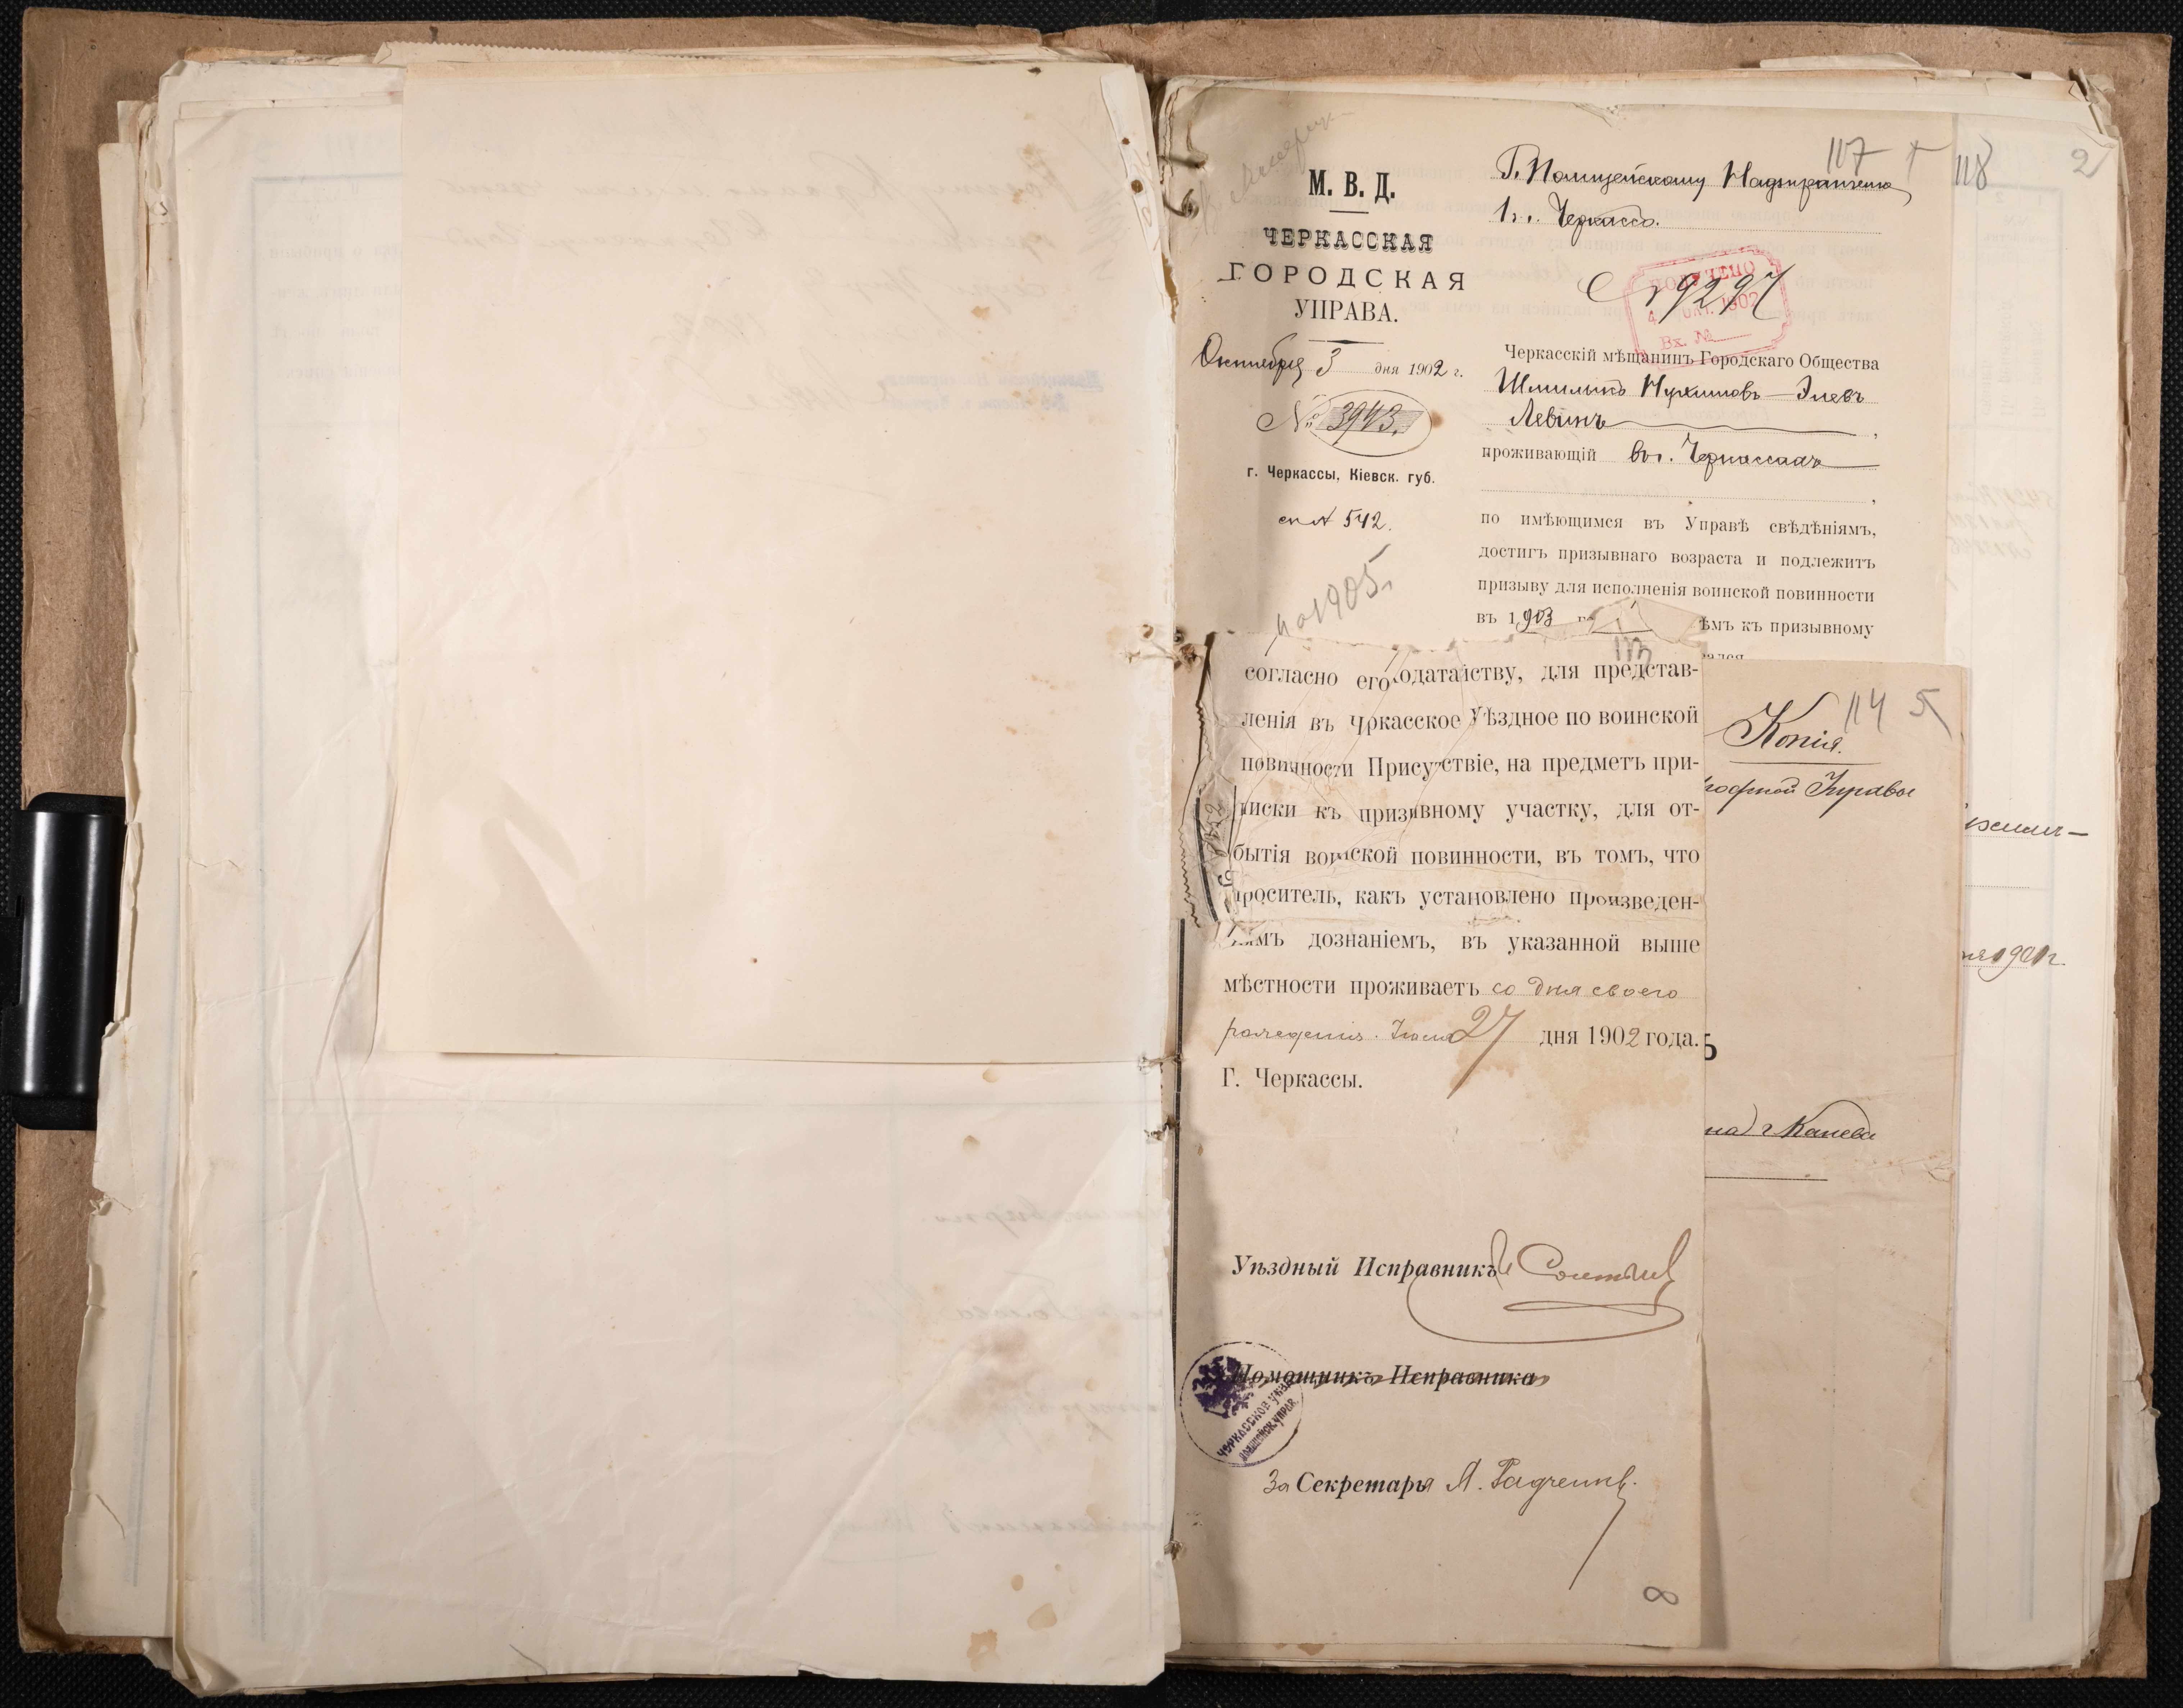 107
118
2
М. В. Д.
ЧЕРКАССКАЯ
ГОРОДСКАЯ
УПРАВА.
Октября 3 дня 1902 г.
№ 3943.
г. Черкассы, Кіевск. губ.
сп № 542.
1905
Г. Полицейскому Надзирателю
1 г. Черкассъ.
9297
ПОЛУЧЕНО
4 ОКТ. 1902
Вх. №
Черкасскій мѣщанинъ Городскаго Общества
Шмиликъ Нухимовъ-Элевъ
Левинъ
проживающій въ г. Черкассахъ
по имѣющимся въ Управѣ свѣдѣніямъ,
достигъ призывнаго возраста и подлежитъ
призыву для исполненія воинской повинности
въ 1903 г ѣмъ къ призывному
ался
113
согласно его ходатайству, для представ-
ленія въ Чркасское Уѣздное по воинской
повинности Присутствіе, на предметъ при-
писки къ призывному участку, для от-
бытія воинской повинности, въ томъ, что
проситель, какъ установлено произведен-
нымъ дознаніемъ, въ указанной выше
мѣстности проживаетъ со дня своего
рожденія. Іюня 27 дня 1902 года.
Г. Черкассы.
Уѣздный Исправникъ
Помощникъ Исправника
ЧЕРКАССКОЕ УѢЗД
ПОЛИЦЕЙСК. УПРАВ.
За Секретаря А. Радченко
8
114 5
Копія.
Управы
г Канева
1901 г.